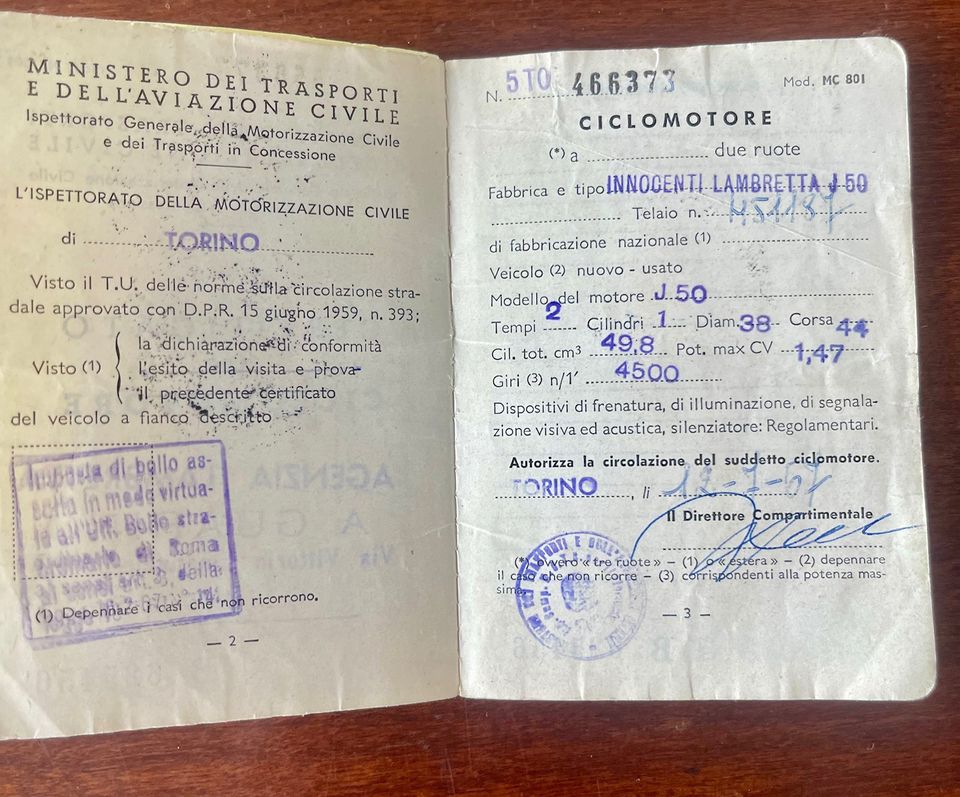 MINISTERO DEI TRASPORTI
E DELL'AVIAZIONE CIVILE
Ispettorato Generale della Motorizzazione Civile
e dei Trasporti in Concessione
L'ISPETTORATO DELLA MOTORIZZAZIONE CIVILE
di TORINO
Visto il T.U. delle norme sulla circolazione stra-
dale approvato con D.P.R. 15 giugno 1959, n. 393;
la dichiarazione di conformità
Visto (1) l'esito della visita e prova
il precedente certificato
del veicolo a fianco descritto
Imposta di bollo as-
solta in modo virtua-
le all'Uff. Bollo stra-
ordinario di Roma
ai sensi della
(1) Depennare i casi che non ricorrono.
— 2 —
N. 5TO 466373 Mod. MC 801
CICLOMOTORE
(*) a due ruote
Fabbrica e tipo INNOCENTI LAMBRETTA J 50
Telaio n.
di fabbricazione nazionale (1)
Veicolo (2) nuovo - usato
Modello del motore J 50
Tempi 2 Cilindri 1 Diam. 38 Corsa 44
Cil. tot. cm³ 49,8 Pot. max CV 1,47
Giri (3) n/1' 4500
Dispositivi di frenatura, di illuminazione, di segnala-
zione visiva ed acustica, silenziatore: Regolamentari.
Autorizza la circolazione del suddetto ciclomotore.
TORINO, li 12-7-67
Il Direttore Compartimentale
(*) ovvero «tre ruote» – (1) o «estera» – (2) depennare
il caso che non ricorre – (3) corrispondenti alla potenza mas-
sima.
— 3 —